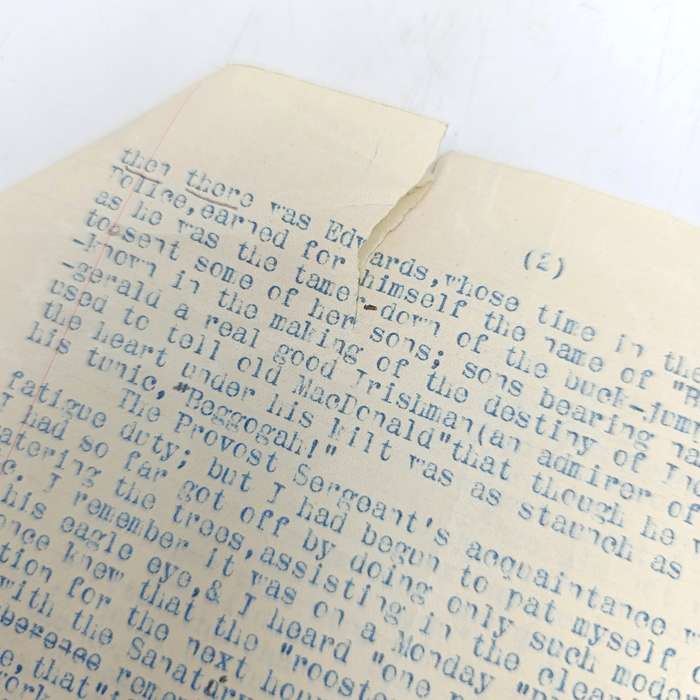 (2)
then there was Edwards,whose time in the
Police,earned for himself the name of "B
as he was the tamer-down of the buck-jum
sent some of her sons; sons bearing na
-known in the making of the destiny of
-gerald a real good Irishman(an admirer of
used to tell old MacDonald"that though he w
the heart under his kilt was as staunch as
his tunic,"Beggogah!"
The Provost Sergeant's acquaintance w
fatigue duty; but I had begun to pat myself
I had so far got off by doing only such mode
watering the trees,assisting in the clea
c. I remember it was on a Monday "
his eagle eye,& I heard "one
once knew that the "rooste
tion for the next hou
with the Sanatury
remem
e,that"i
work